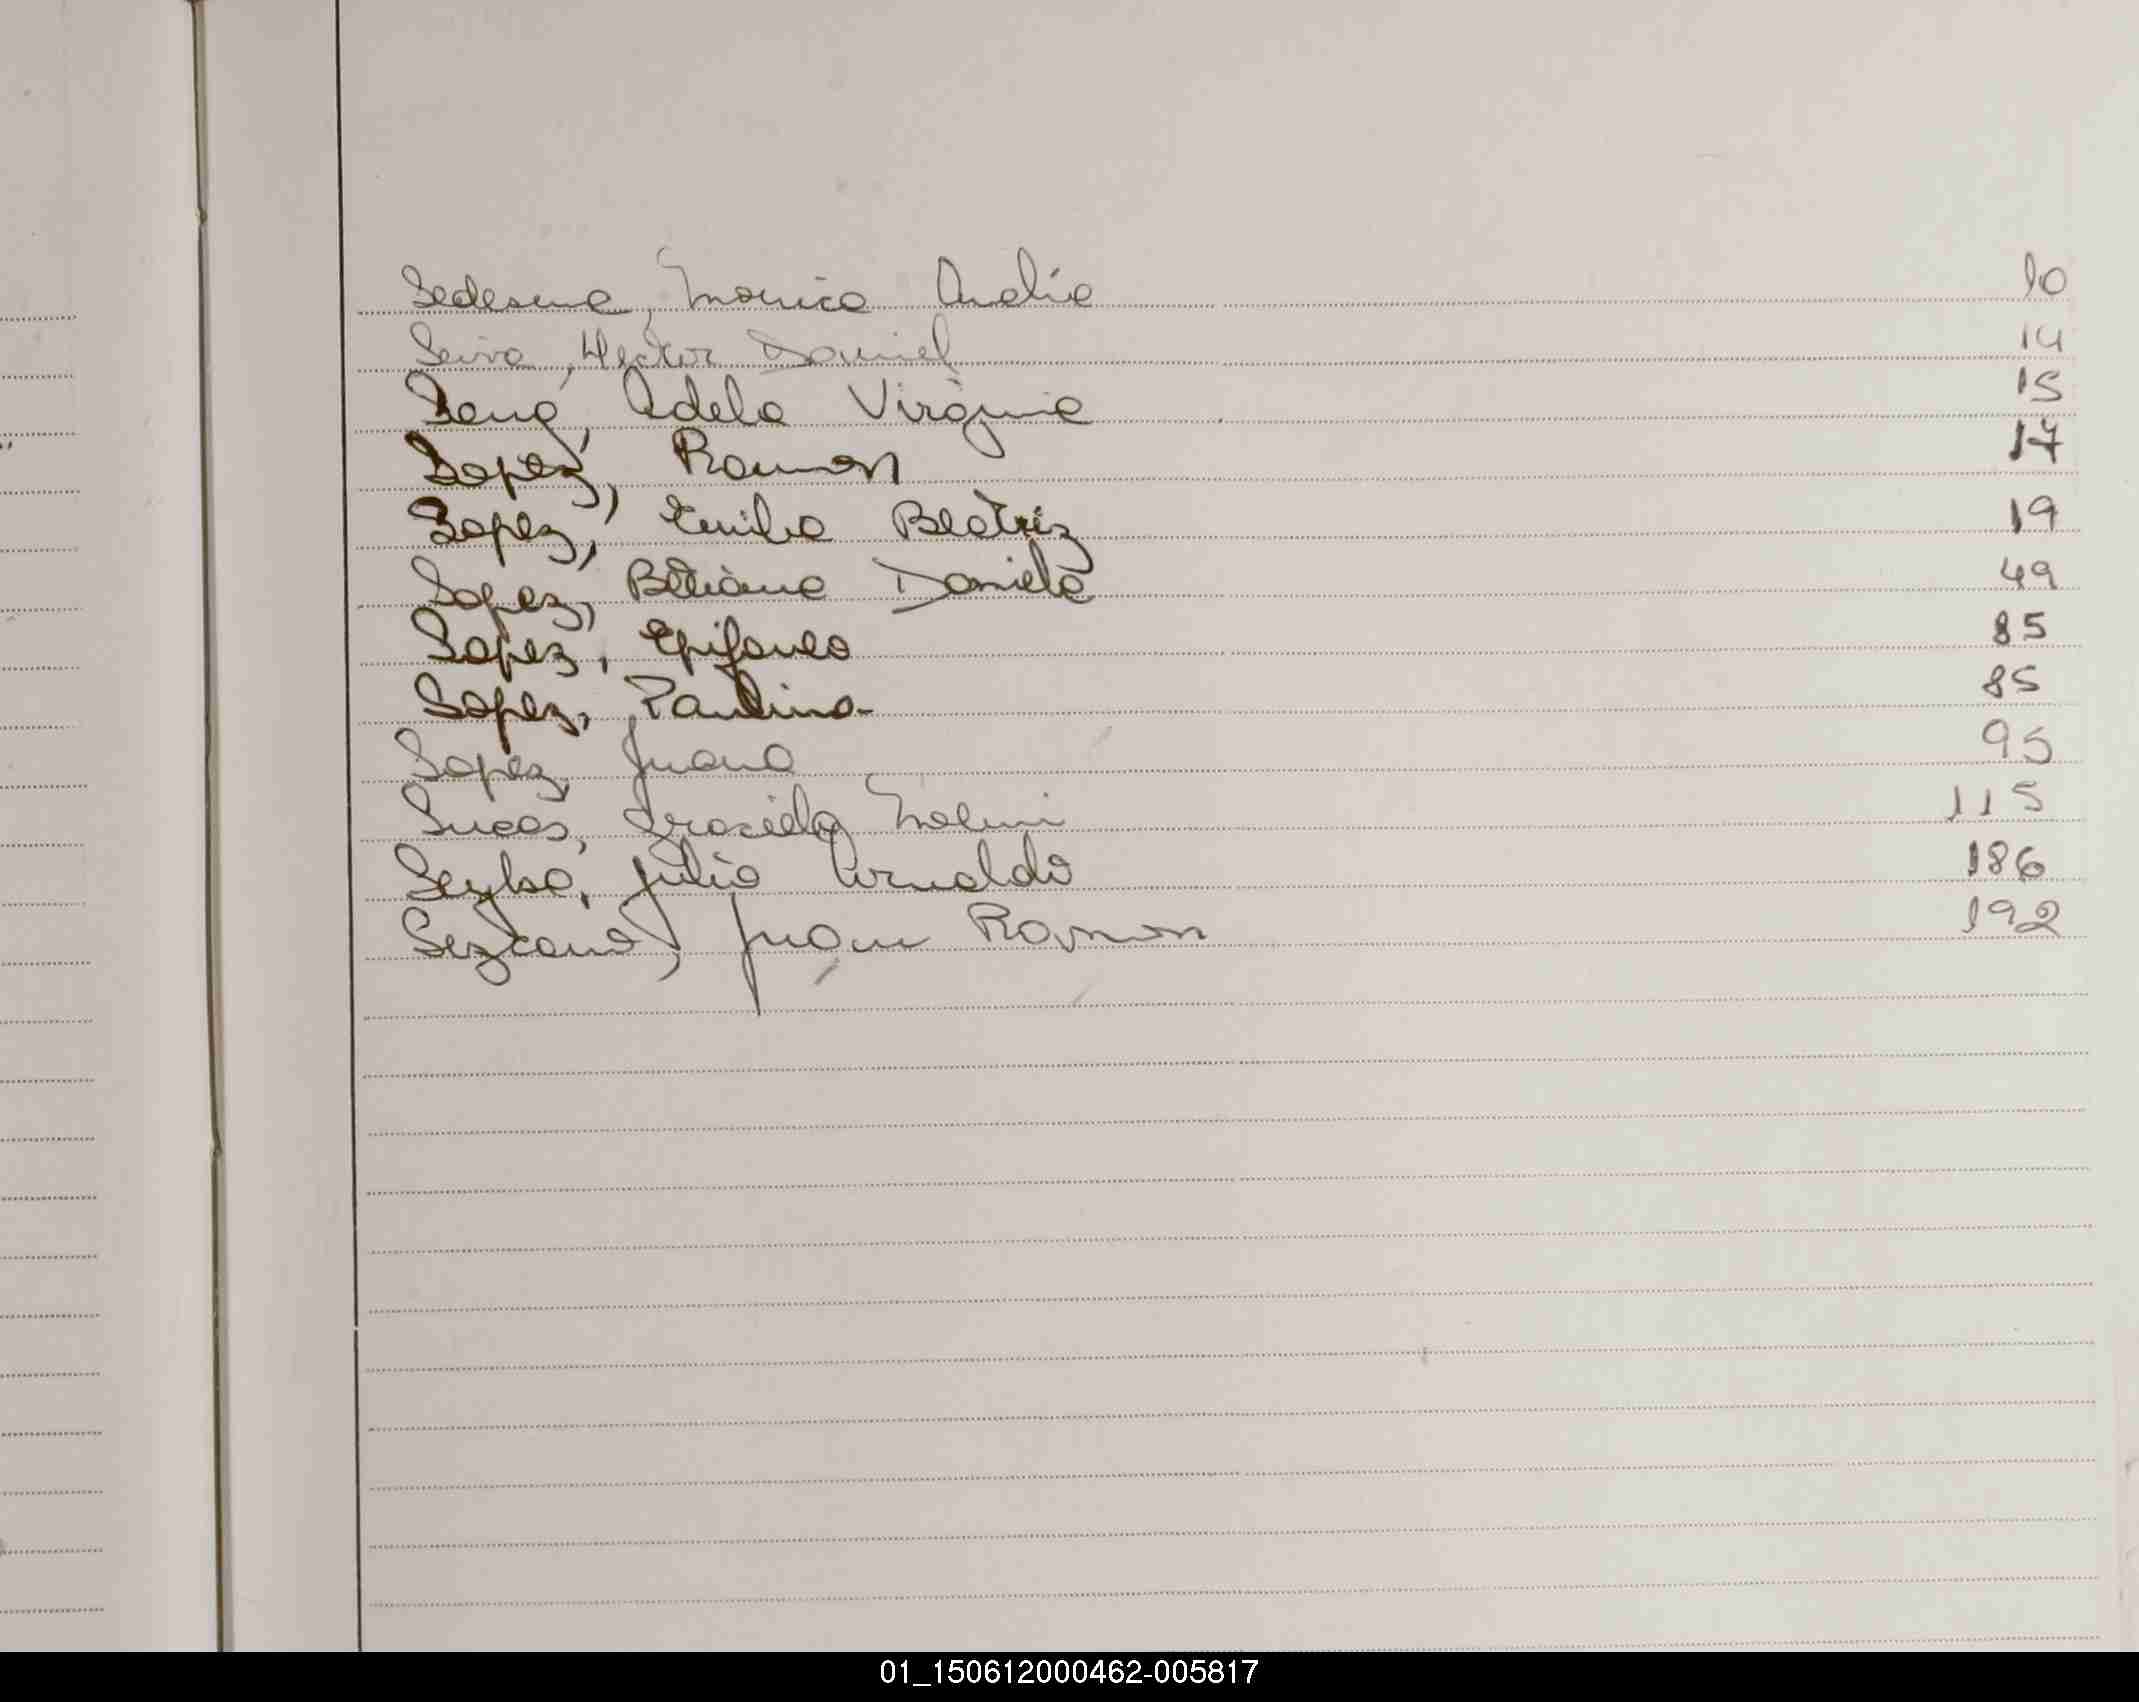 Ledesma, Monica Analia 10
Leiva, Hector Daniel 14
Adela Virginia 15
Lopez, Ramon 17
Lopez, Emilia Beatriz 19
Lopez, Betiana Daniela 49
Lopez, Epifaneo 85
Lopez, Paulino 85
Lopez, Juana 95
Lucas, Graciela Noemi 115
Leyba, Julio Arnaldo 186
Lezcano, Juan Ramon 192
01_150612000462-005817